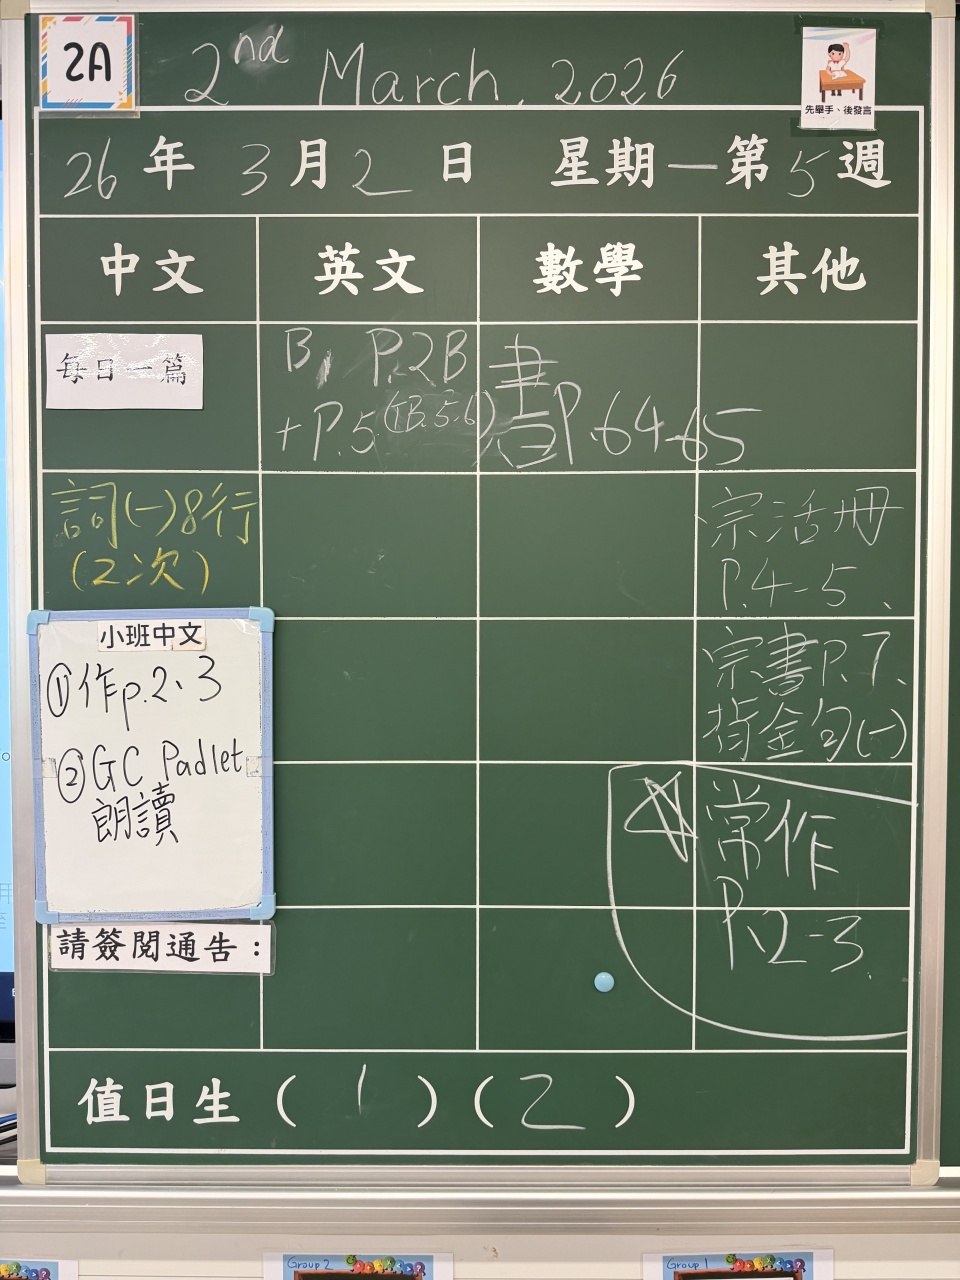 2A
2nd March. 2026
先舉手、後發言
26 年 3 月 2 日 星期一第 5 週
中文 英文 數學 其他
每日一篇
B, P.2B
+P.5 (TB.5-6)
書
P.64-65
詞(一)8行
(2次)
宗活冊
P.4-5、
小班中文
①作p.2、3
②GC Padlet
朗讀
宗書P.7、
背金句(一)
常作
P.2-3
請簽閱通告：
值日生 ( 1 ) ( 2 )
Group 2
Group 1